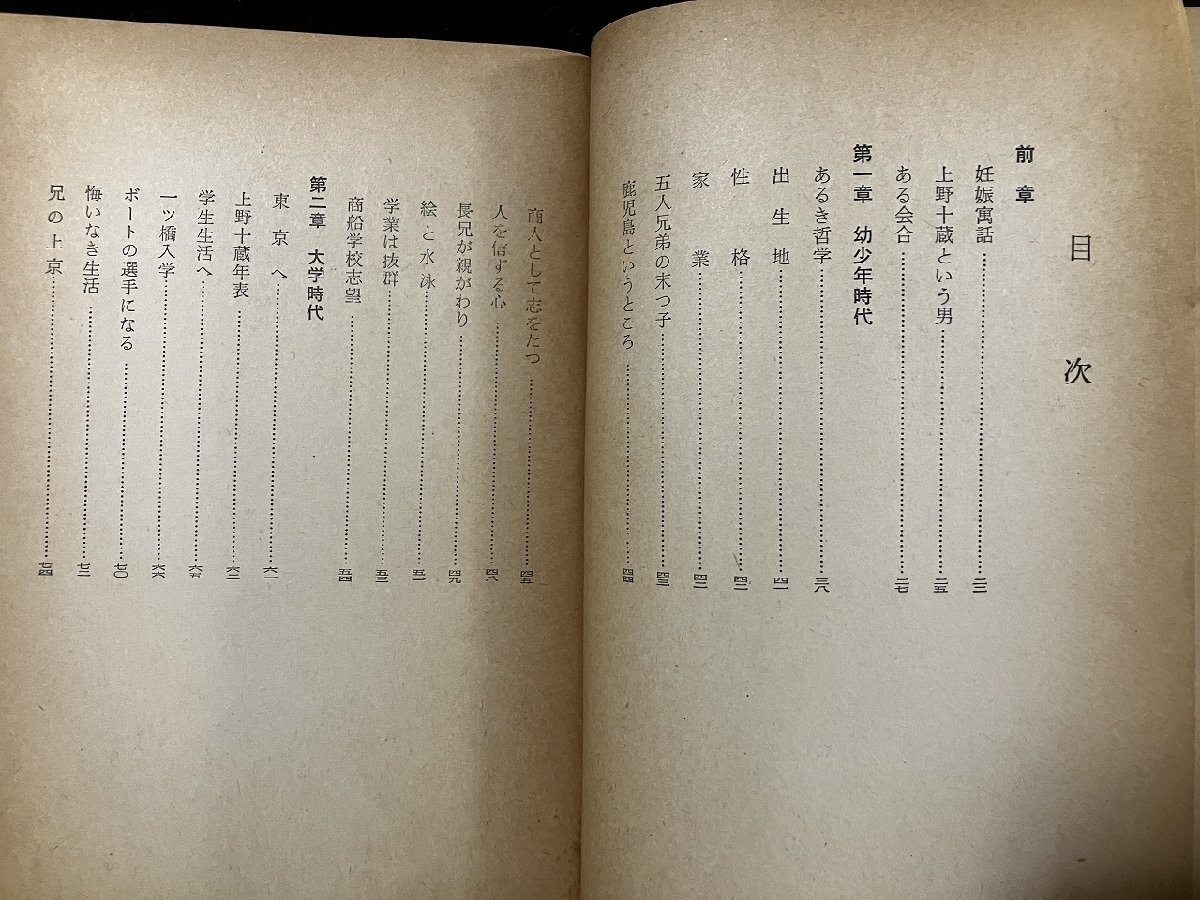 目次
前章
妊娠寓話……二三
上野十蔵という男……二五
ある会合……二七
第一章 幼少年時代
あるき哲学……三八
出生地……四一
性格……四二
家業……四二
五人兄弟の末つ子……四三
鹿児島というところ……四四
商人として志をたつ……四五
人を信ずる心……四八
長兄が親がわり……四九
絵と水泳……五一
学業は抜群……五三
商船学校志望……五四
第二章 大学時代
東京へ……六一
上野十蔵年表……六二
学生生活へ……六五
一ツ橋入学……六六
ボートの選手になる……七〇
悔いなき生活……七二
兄の上京……七四